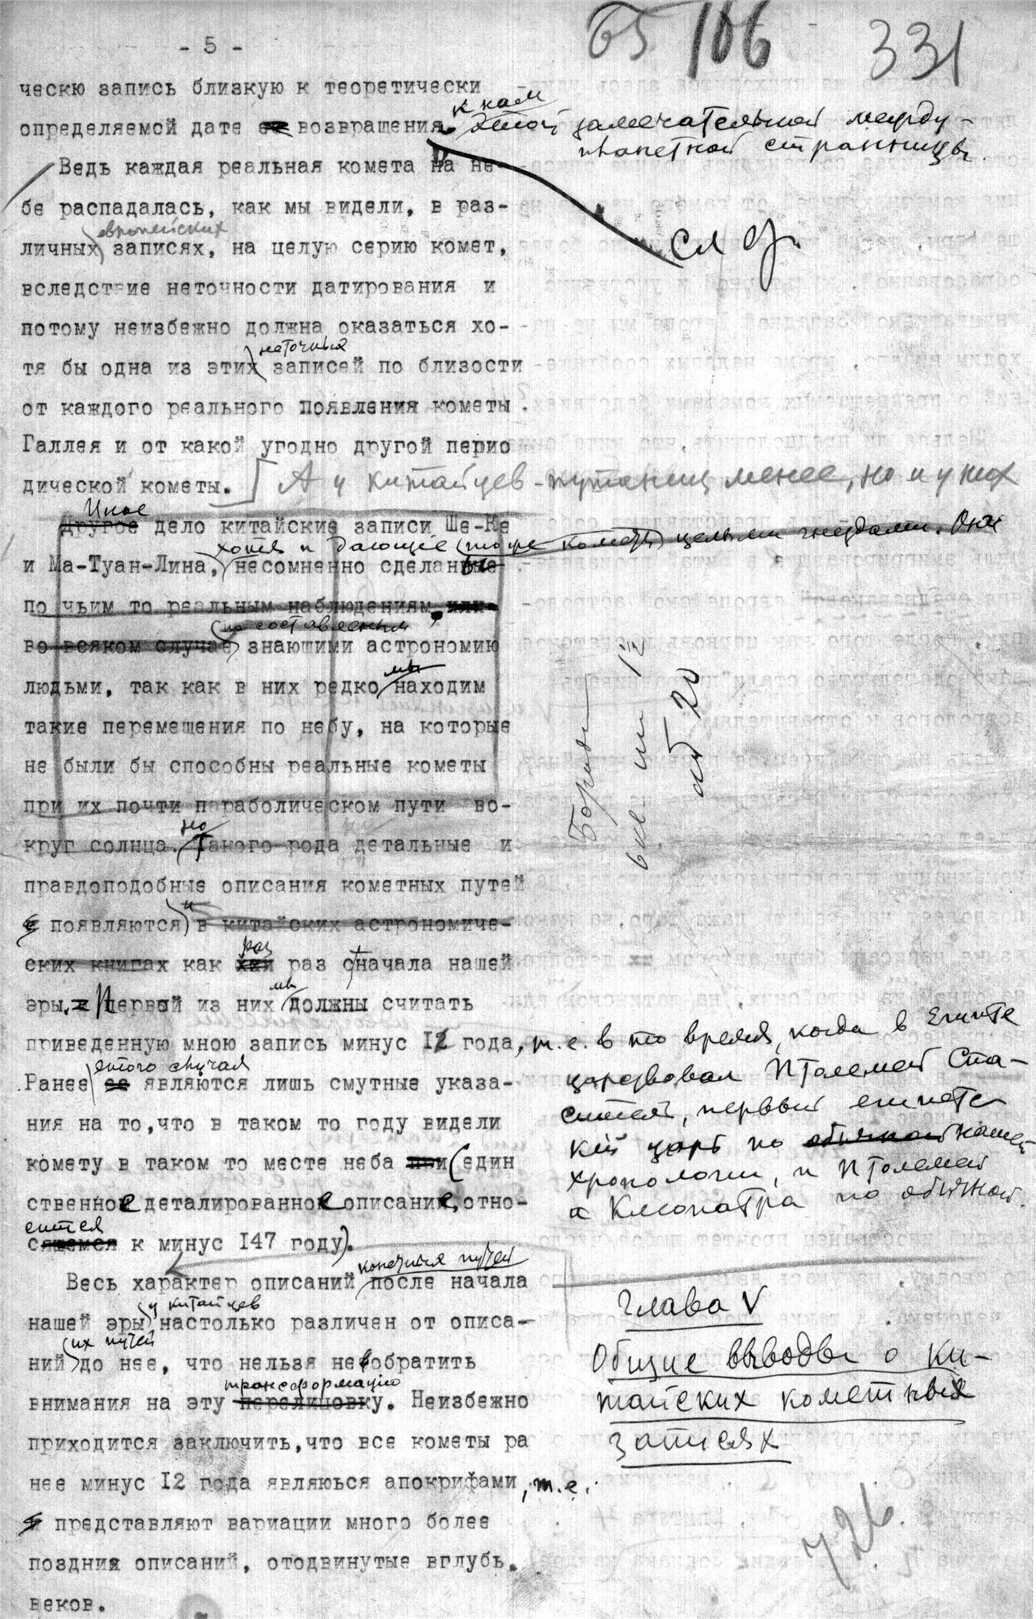 - 5 -
Б5 106 331
ческю запись близкую к теоретически
определяемой дате ее возвращения к нам этой замечательной между-
планетной странницы.
Ведь каждая реальная комета на не-
бе распадалась, как мы видели, в раз-
личных европейских записях, на целую серию комет,
сл
вследствие неточности датирования и
потому неизбежно должна оказаться хо-
тя бы одна из этих неточных записей по близости
от каждого реального появления кометы
Галлея и от какой угодно другой перио
дической кометы. А у китайцев путаниц менее, но и у них
Иное
Другое дело китайские записи Ше-Ке
хотя и дающие кометы целыми гнездами. Они
и Ма-Туан-Лина, несомненно сделаны
по чьим то реальным наблюдениям, или
во всяком случае составленным знающими астрономию
людьми, так как в них редко мы находим
такие перемещения по небу, на которые
не были бы способны реальные кометы
при их почти параболическом пути во-
круг солнца. но Такого рода детальные и
правдоподобные описания кометных путей
появляются в китайских астрономиче-
ских книгах как раз раз с начала нашей
эры. Первой из них мы должны считать
приведенную мною запись минус I2 года, т.е. в то время, когда в Египте
царствовал Птолемей Спа-
ситель, первый египетс
кий царь по обычной нашей
хронологии, и Птолемей
и Клеопатра по обычной.
Ранее этого случая являются лишь смутные указа-
ния на то,что в таком то месте видели
комету в таком то месте неба (един
ственное деталированное описание, отно-
сится
к минус I47 году).
Весь характер описаний кометных путей после начала
нашей эры у китайцев настолько различен от описа-
ний их путей до нее, что нельзя не обратить
внимания на эту трансформацию перелицовку. Неизбежно
приходится заключить,что все кометы ра
нее минус I2 года являюься апокрифами, т.е.
представляют вариации много более
поздних описаний, отодвинутые вглубь
веков.
Глава V
Общие выводы о ки-
тайских кометных
записях
726.